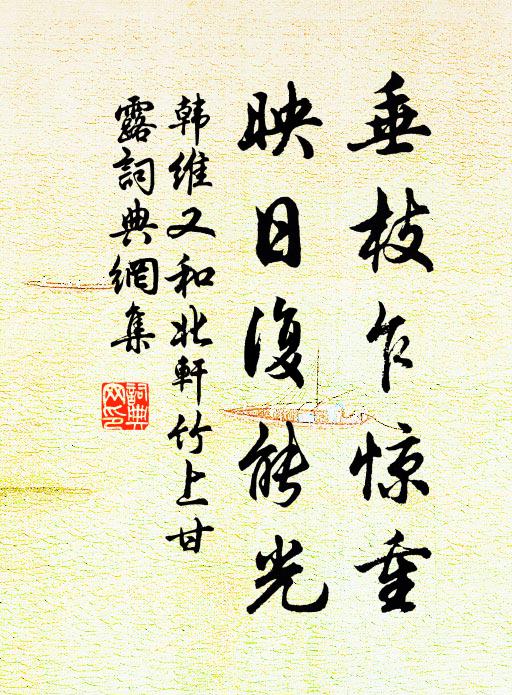 垂枝乍惊重
映日復能光
韩維又和北軒竹上甘
露詞典網集
詞典
网印